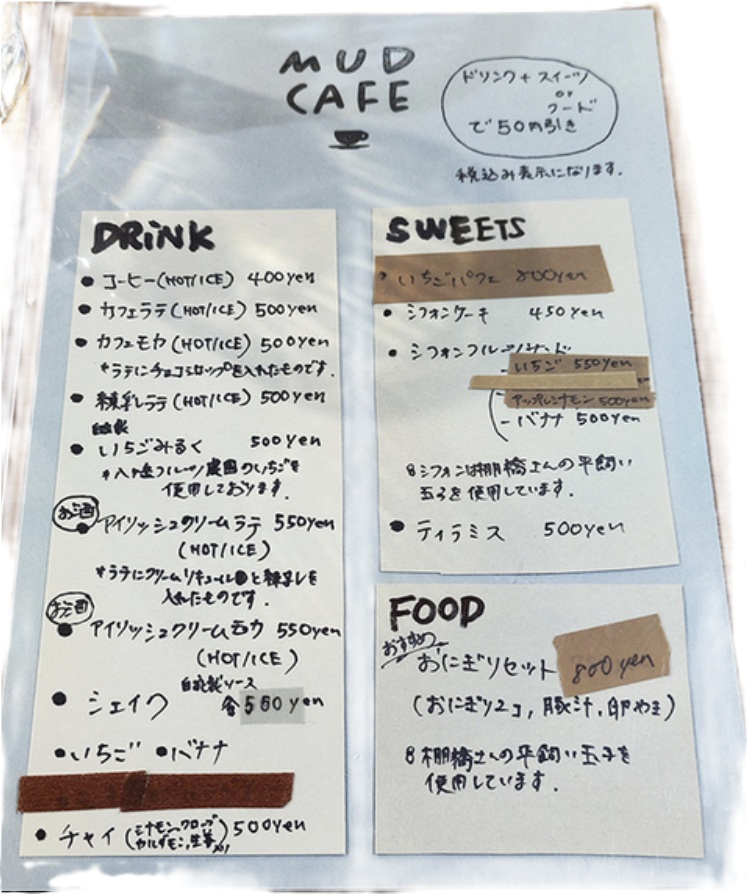 MUD
CAFE
ドリンク+スイーツ
or
フード
で50円引き
税込み表示になります.
DRiNK
● コーヒー(HOT/ICE) 400yen
● カフェラテ(HOT/ICE) 500yen
● カフェモカ(HOT/ICE) 500yen
*ラテにチョコシロップを入れたものです.
● 練乳ラテ(HOT/ICE) 500yen
自家製
● いちごみるく 500yen
*八ヶ岳フルーツ農園のいちごを
使用しております.
お酒
● アイリッシュクリームラテ 550yen
(HOT/ICE)
*ラテにクリームリキュールと練乳を
入れたものです.
お酒
● アイリッシュクリームモカ 550yen
(HOT/ICE)
自家製ソース
● シェイク 各550yen
●いちご ●バナナ
● チャイ(シナモン、クローブ 500yen
カルダモン、生姜
SWEETS
● いちごパフェ 800yen
● シフォンケーキ 450yen
● シフォンフルーツサンド
いちご 550yen
アップルシナモン 500yen
-バナナ 500yen
8シフォンは棚橋さんの平飼い
玉子を使用しています.
● ティラミス 500yen
FOOD
おすすめ
おにぎりセット 800yen
(おにぎり2コ, 豚汁, 卵やき)
8棚橋さんの平飼い玉子を
使用しています.